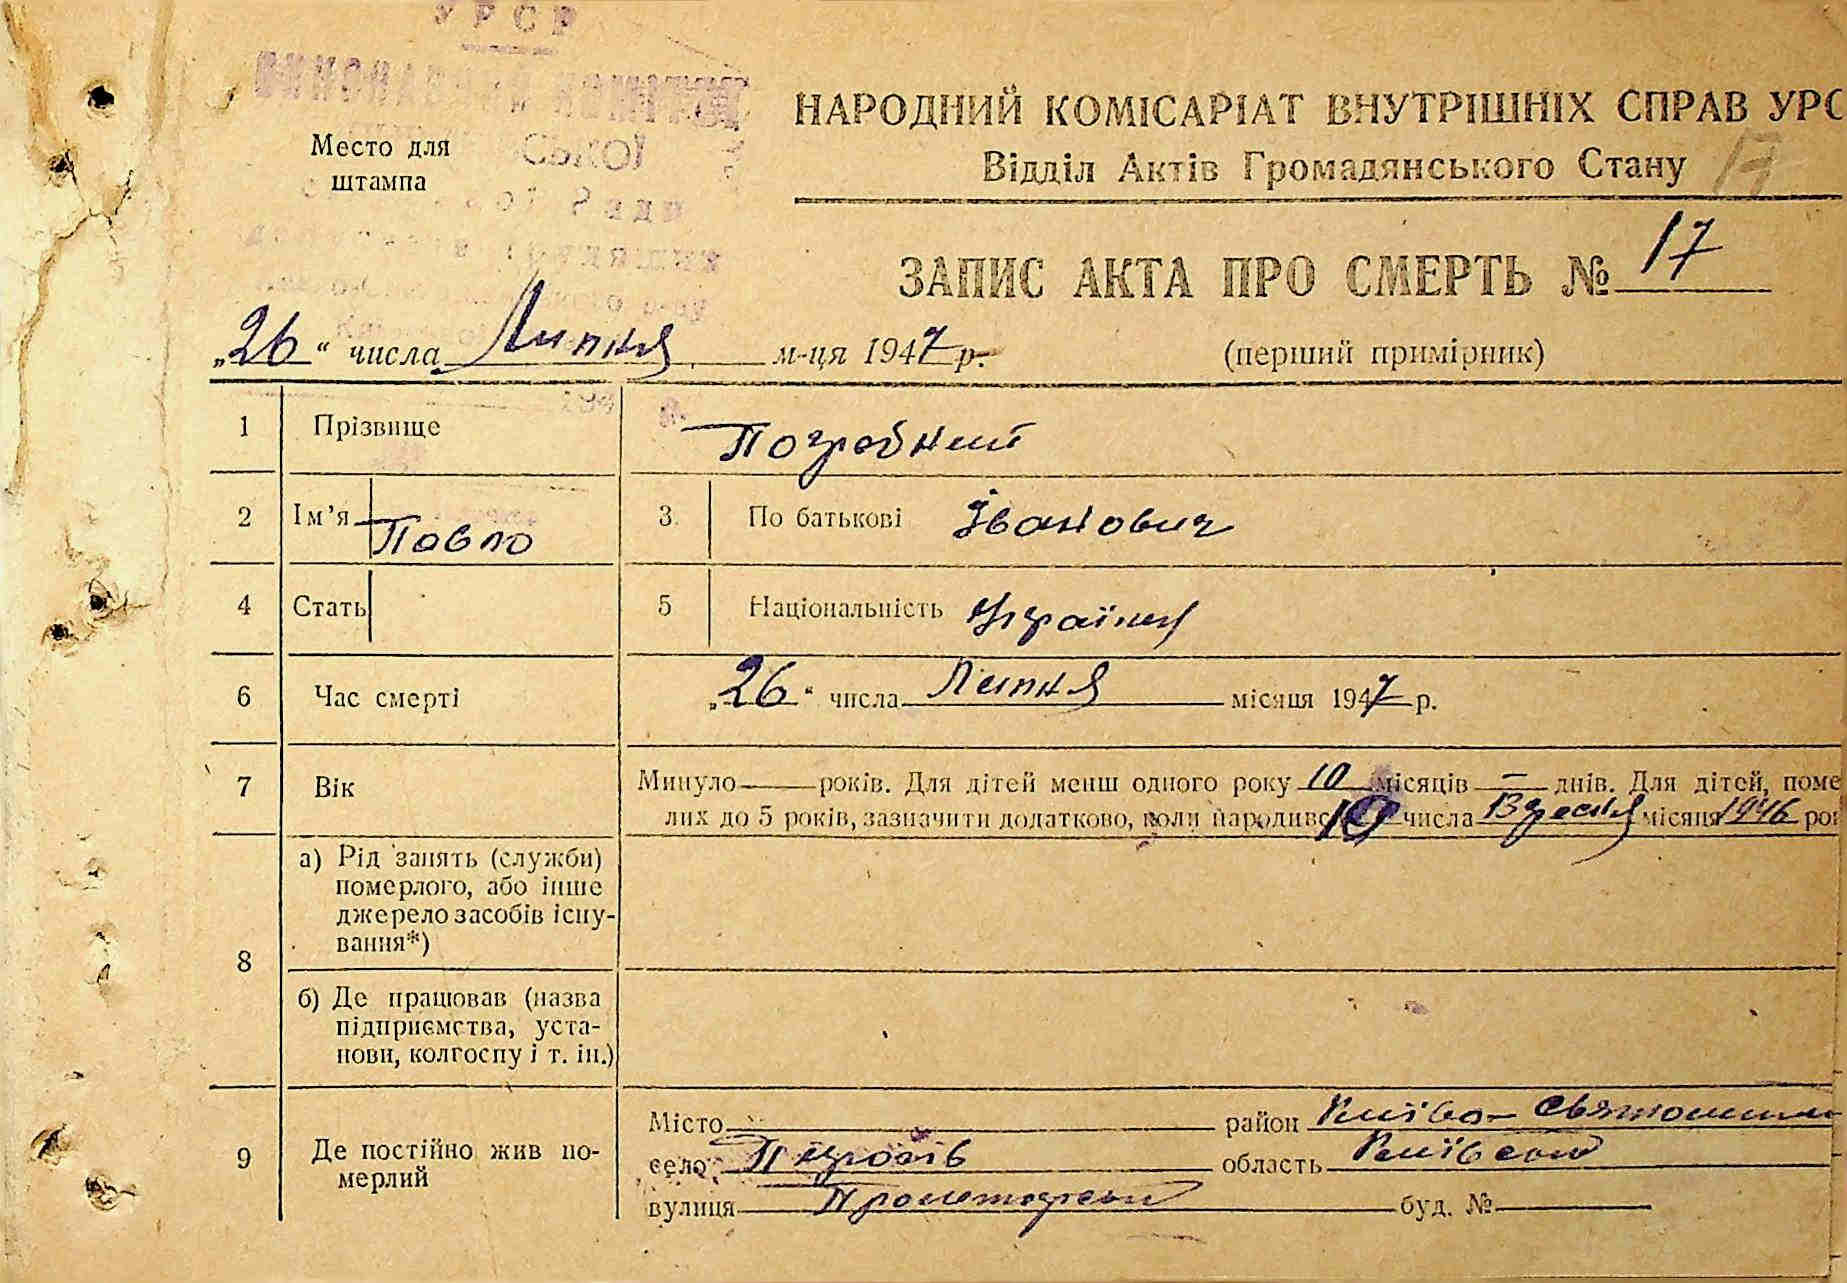 УРСР
ВИКОНАВЧИЙ КОМІТЕТ
Место для
штампа
СЬКОЇ
НАРОДНИЙ КОМІСАРІАТ ВНУТРІШНІХ СПРАВ УРС
Відділ Актів Громадянського Стану 17
ЗАПИС АКТА ПРО СМЕРТЬ № 17
„26“ числа Липня м-ця 1947 р.
(перший примірник)
1 Прізвище Погребний
2 Ім'я Павло 3 По батькові Іванович
4 Стать 5 Національність Українец
6 Час смерті „26“ числа Липня місяця 1947 р.
7 Вік Минуло — років. Для дітей менш одного року 10 місяців — днів. Для дітей, поме
лих до 5 років, зазначити додатково, коли народивс 10 числа Вересня місяця 1946 рок
8 а) Рід занять (служби)
померлого, або інше
джерело засобів існу-
вання*)
б) Де працював (назва
підприємства, уста-
нови, колгоспу і т. ін.)
9 Де постійно жив по-
мерлий
Місто район Києво-Святошин
село область Київської
вулиця Пролетарська буд. №